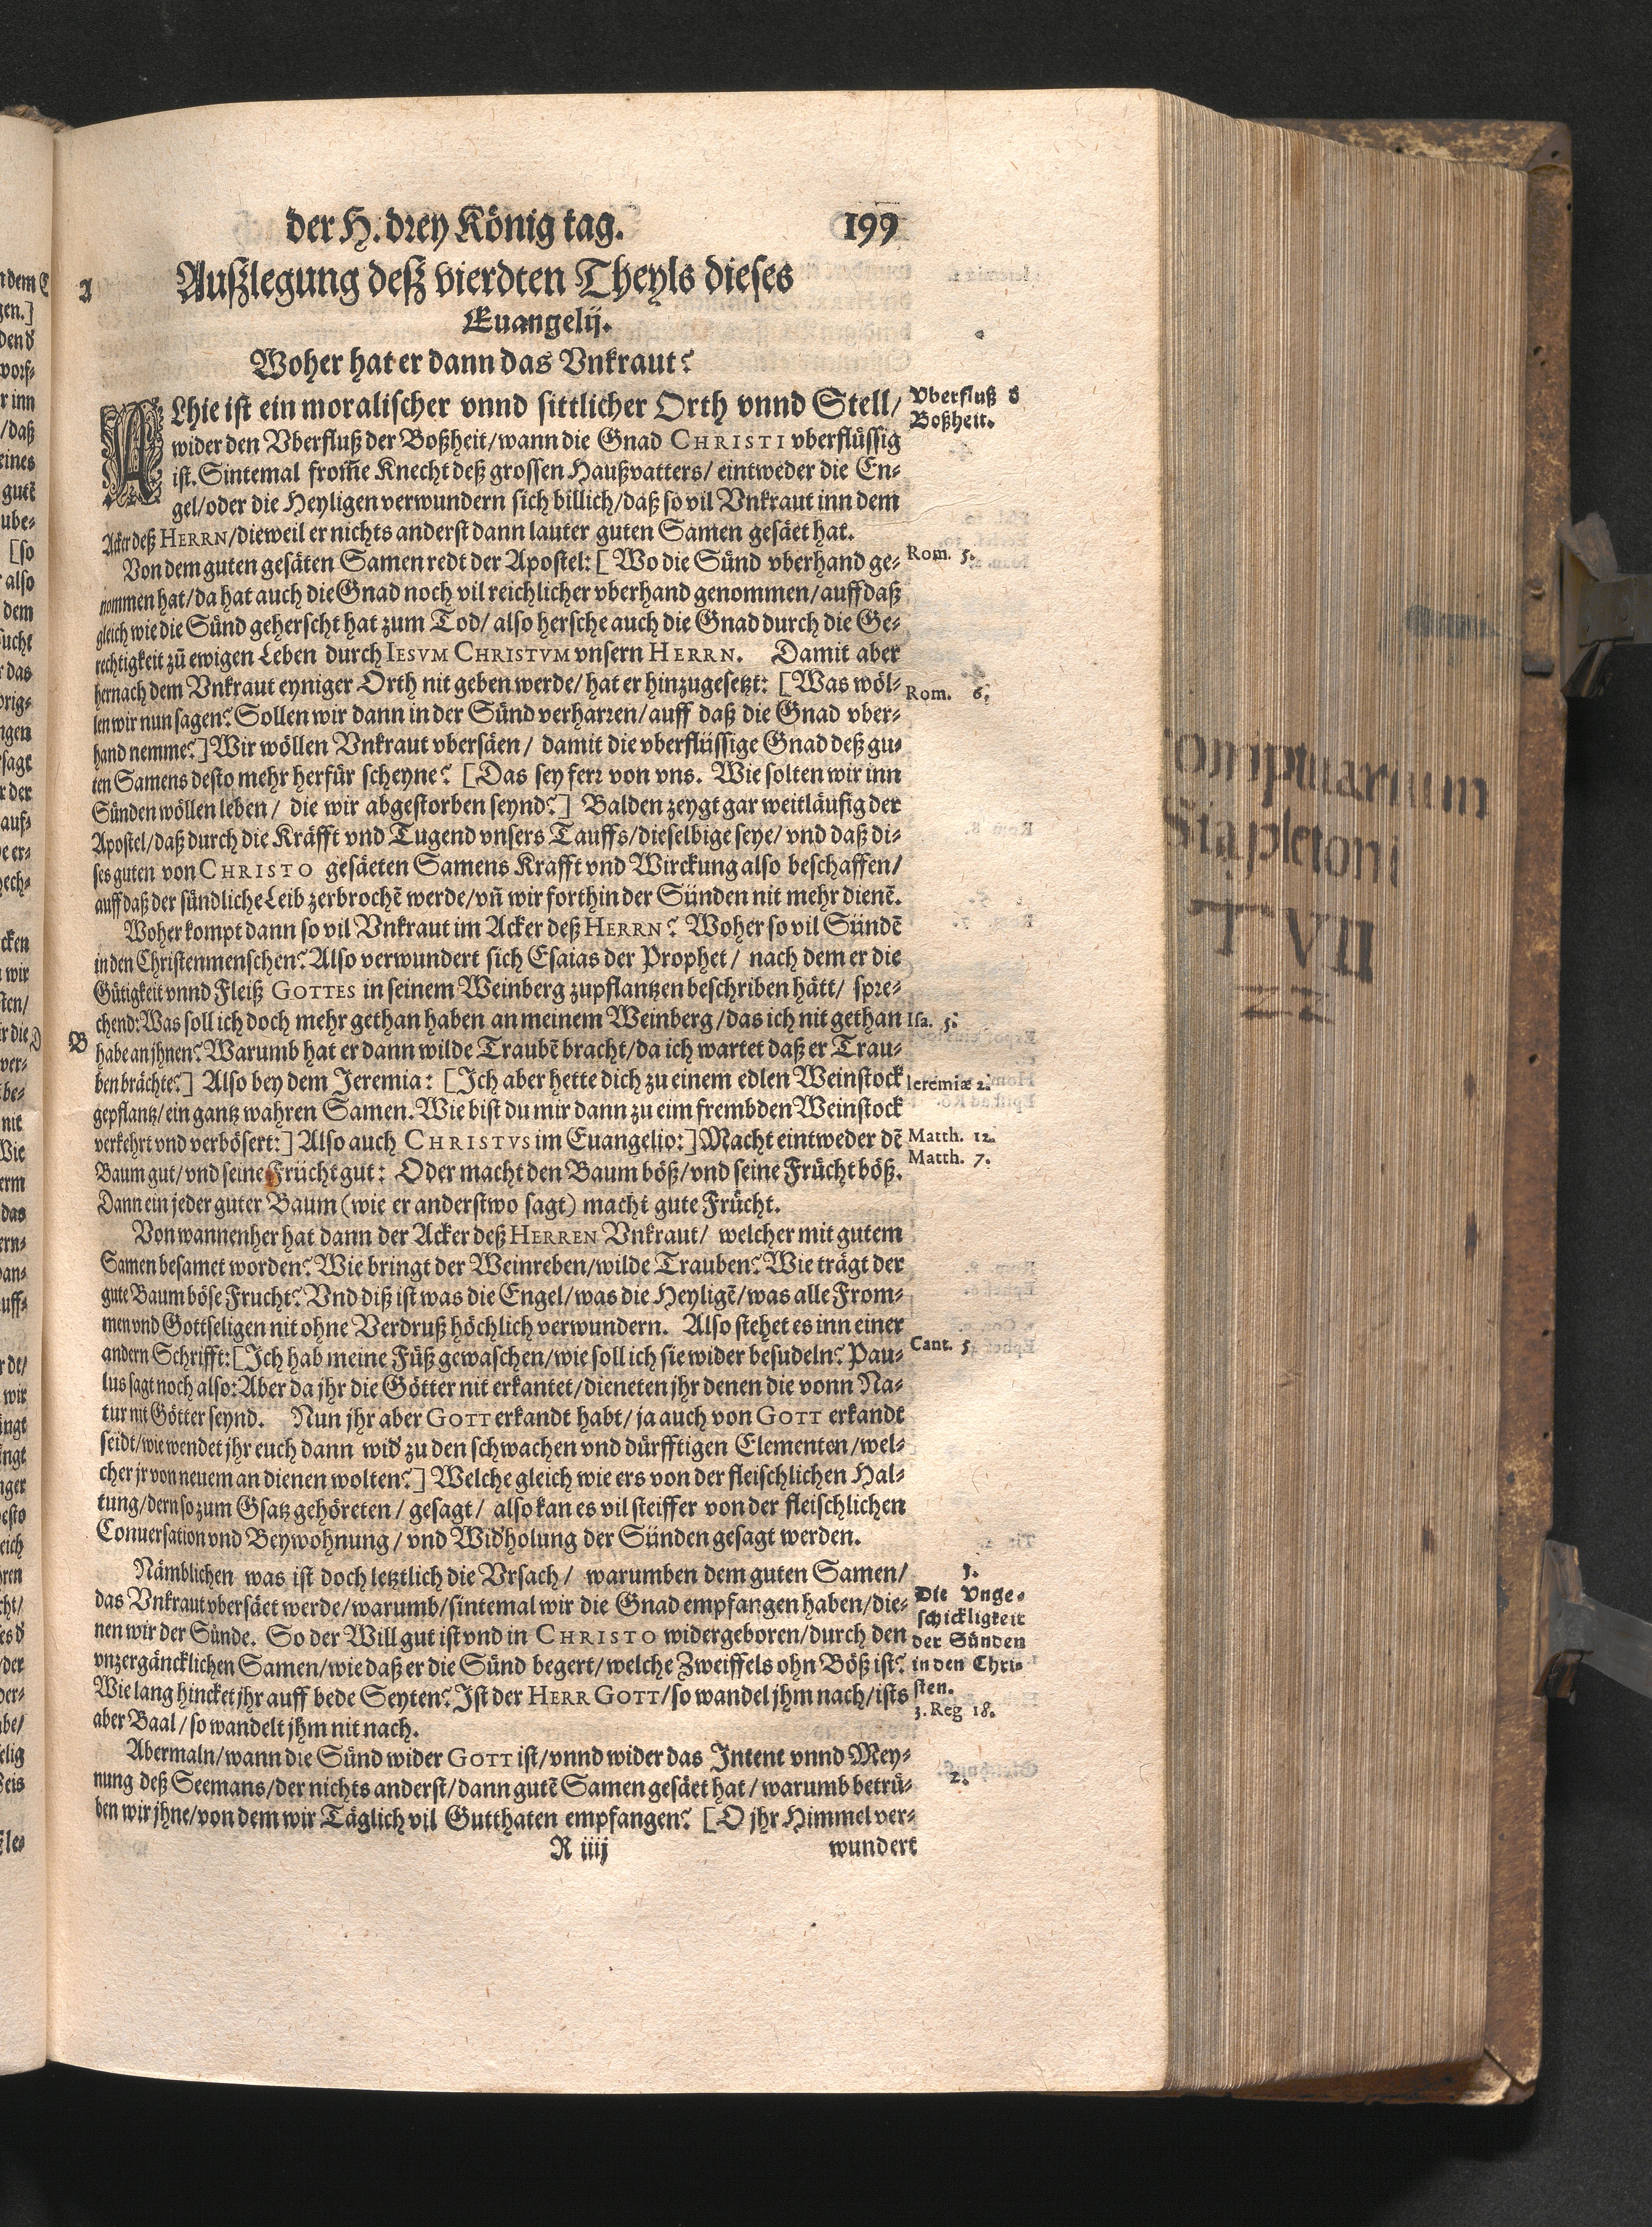 der H. drey König tag. 199
A Außlegung deß vierdten Theyls dieses
Euangelij.
Woher hat er dann das Vnkraut?
ALhie ist ein moralischer vnnd sittlicher Orth vnnd Stell/
wider den Vberfluß der Boßheit/wann die Gnad CHRISTI vberflüssig
ist. Sintemal from̃e Knecht deß grossen Haußvatters/ eintweder die En-
gel/oder die Heyligen verwundern sich billich/daß so vil Vnkraut inn dem
Acker deß HERRN/dieweil er nichts anderst dann lauter guten Samen gesäet hat.
Vberfluß d
Boßheit.
Von dem guten gesäten Samen redt der Apostel: [Wo die Sünd vberhand ge-
nommen hat/da hat auch die Gnad noch vil reichlicher vberhand genommen/auff daß
gleich wie die Sünd geherscht hat zum Tod/ also hersche auch die Gnad durch die Ge-
rechtigkeit zů ewigen Leben durch IESVM CHRISTVM vnsern HERRN. Damit aber
hernach dem Vnkraut eyniger Orth nit geben werde/ hat er hinzugesetzt: [Was wöl-
len wir nun sagen? Sollen wir dann in der Sünd verharren/auff daß die Gnad vber-
hand nemme?] Wir wöllen Vnkraut vbersäen/ damit die vberflüssige Gnad deß gu-
ten Samens desto mehr herfür scheyne? [Das sey ferr von vns. Wie solten wir inn
Sünden wöllen leben/ die wir abgestorben seynd?] Balden zeygt gar weitläufig der
Apostel/daß durch die Kräfft vnd Tugend vnsers Tauffs/dieselbige seye/ vnd daß di-
ses guten von CHRISTO gesäeten Samens Krafft vnd Wirckung also beschaffen/
auff daß der sündliche Leib zerbrochẽ werde/vñ wir forthin der Sünden nit mehr dienẽ.
Rom. 5.
Rom. 6.
Woher kompt dann so vil Vnkraut im Acker deß HERRN? Woher so vil Sündẽ
in den Christenmenschen? Also verwundert sich Esaias der Prophet/ nach dem er die
Gütigkeit vnnd Fleiß GOTTES in seinem Weinberg zupflantzen beschriben hätt/ spre-
chend: Was soll ich doch mehr gethan haben an meinem Weinberg/das ich nit gethan
B habe an jhnen? Warumb hat er dann wilde Traubẽ bracht/da ich wartet daß er Trau-
ben brächte?] Also bey dem Jeremia: [Ich aber hette dich zu einem edlen Weinstock
gepflantz/ein gantz wahren Samen. Wie bist du mir dann zu eim frembden Weinstock
verkehrt vnd verbösert:] Also auch CHRISTVS im Euangelio:] Macht eintweder dẽ
Baum gut/vnd seine Frücht gut: Oder macht den Baum böß/vnd seine Frücht böß.
Dann ein jeder guter Baum (wie er anderstwo sagt) macht gute Frücht.
Isa. 5.
Ieremiæ 2.
Matth. 12.
Matth. 7.
Von wannenher hat dann der Acker deß HERREN Vnkraut/ welcher mit gutem
Samen besamet worden? Wie bringt der Weinreben/wilde Trauben? Wie trägt der
gute Baum böse Frucht? Vnd diß ist was die Engel/was die Heyligẽ/was alle From-
men vnd Gottseligen nit ohne Verdruß höchlich verwundern. Also stehet es inn einer
andern Schrifft: [Ich hab meine Füß gewaschen/wie soll ich sie wider besudeln? Pau-
lus sagt noch also: Aber da jhr die Götter nit erkantet/dieneten jhr denen die vonn Na-
tur nit Götter seynd. Nun jhr aber GOTT erkandt habt/ ja auch von GOTT erkandt
seidt/wie wendet jhr euch dann wid' zu den schwachen vnd dürfftigen Elementen/wel-
cher jr von neuem an dienen wolten?] Welche gleich wie ers von der fleischlichen Hal-
tung/dern so zum Gsatz gehöreten/ gesagt/ also kan es vil steiffer von der fleischlichen
Conuersation vnd Beywohnung/ vnd Wid'holung der Sünden gesagt werden.
Cant. 5
Nämblichen was ist doch letztlich die Vrsach/ warumben dem guten Samen/
das Vnkraut vbersäet werde/warumb/sintemal wir die Gnad empfangen haben/die-
nen wir der Sünde. So der Will gut ist vnd in CHRISTO widergeboren/durch den
vnzergäncklichen Samen/wie daß er die Sünd begert/welche Zweiffels ohn Böß ist?
Wie lang hincket jhr auff bede Seyten? Ist der HERR GOTT/so wandel jhm nach/ists
aber Baal/so wandelt jhm nit nach.
1.
Die Vnge-
schickligkeit
der Sünden
in den Chri-
sten.
3. Reg 18.
Abermaln/wann die Sünd wider GOTT ist/vnnd wider das Intent vnnd Mey-
nung deß Seemans/der nichts anderst/dann gutẽ Samen gesäet hat/warumb betrü-
ben wir jhne/von dem wir Täglich vil Gutthaten empfangen? [O jhr Himmel ver-
2.
R iiij wundert
Stapletoni
T VII